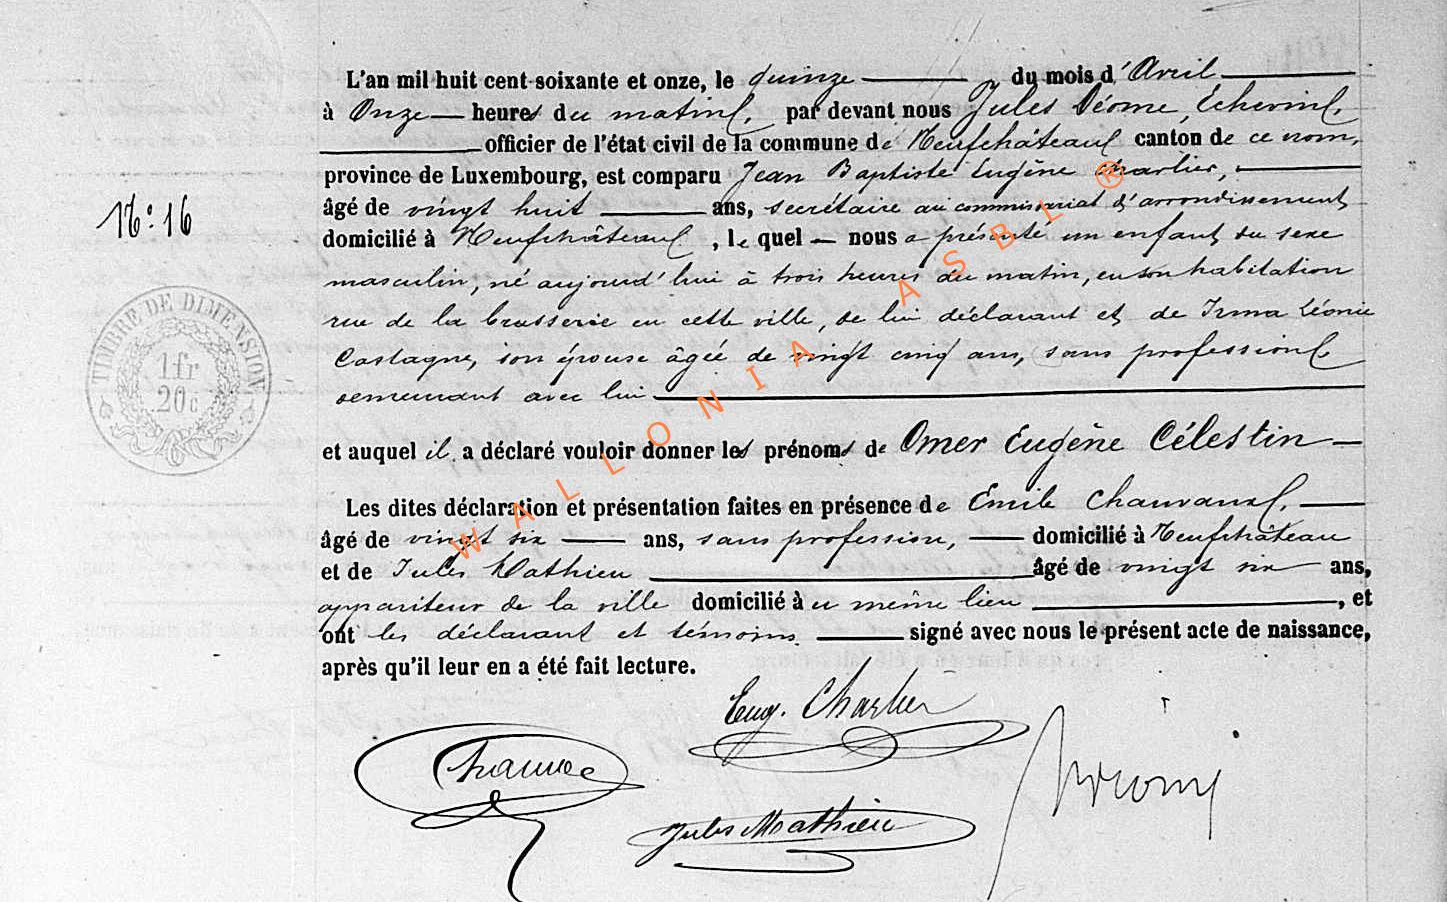 L'an mil huit cent soixante et onze, le quinze du mois d'Avril
à Onze heures du matin, par devant nous Jules Déome, Echevin,
officier de l'état civil de la commune de Neufchâteau canton de ce nom,
province de Luxembourg, est comparu Jean Baptiste Eugène Charlier,
âgé de vingt huit ans, secrétaire au commissariat d'arrondissement
domicilié à Neufchâteau, lequel nous a présenté un enfant du sexe
N.° 16
masculin, né aujourd'hui à trois heures du matin, en son habitation
rue de la brasserie en cette ville, de lui déclarant et de Irma Léonie
Castagne, son épouse âgée de vingt cinq ans, sans profession
demeurant avec lui
TIMBRE DE DIMENSION
1 fr
20 c
et auquel il a déclaré vouloir donner les prénoms de Omer Eugène Célestin
Les dites déclaration et présentation faites en présence de Emile
âgé de vingt six ans, sans profession, domicilié à Neufchâteau
et de Jules Mathieu âgé de vingt six ans,
appariteur de la ville domicilié à ce même lieu, et
ont les déclarant et témoins signé avec nous le présent acte de naissance,
après qu'il leur en a été fait lecture.
Eug. Charlier
Jules Mathieu
WALLONIA ASBL ®